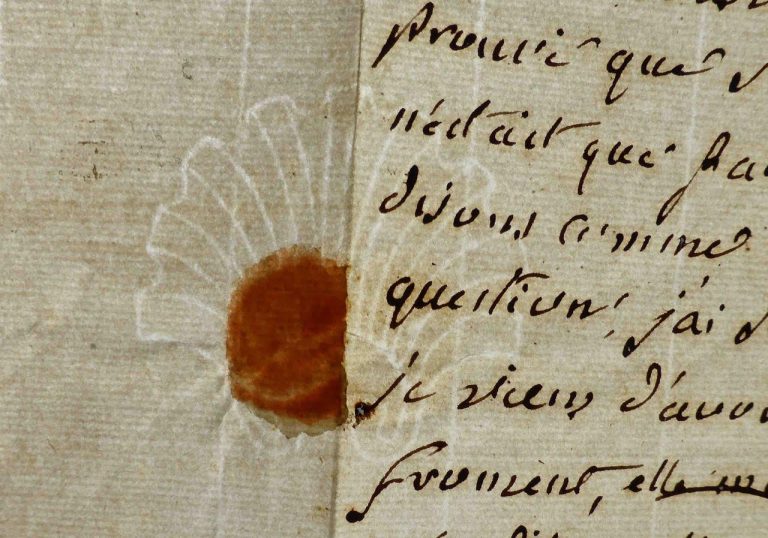 prouvé que
n'était que
disons comme
question, j'ai
je viens d'avoi
froment, elle